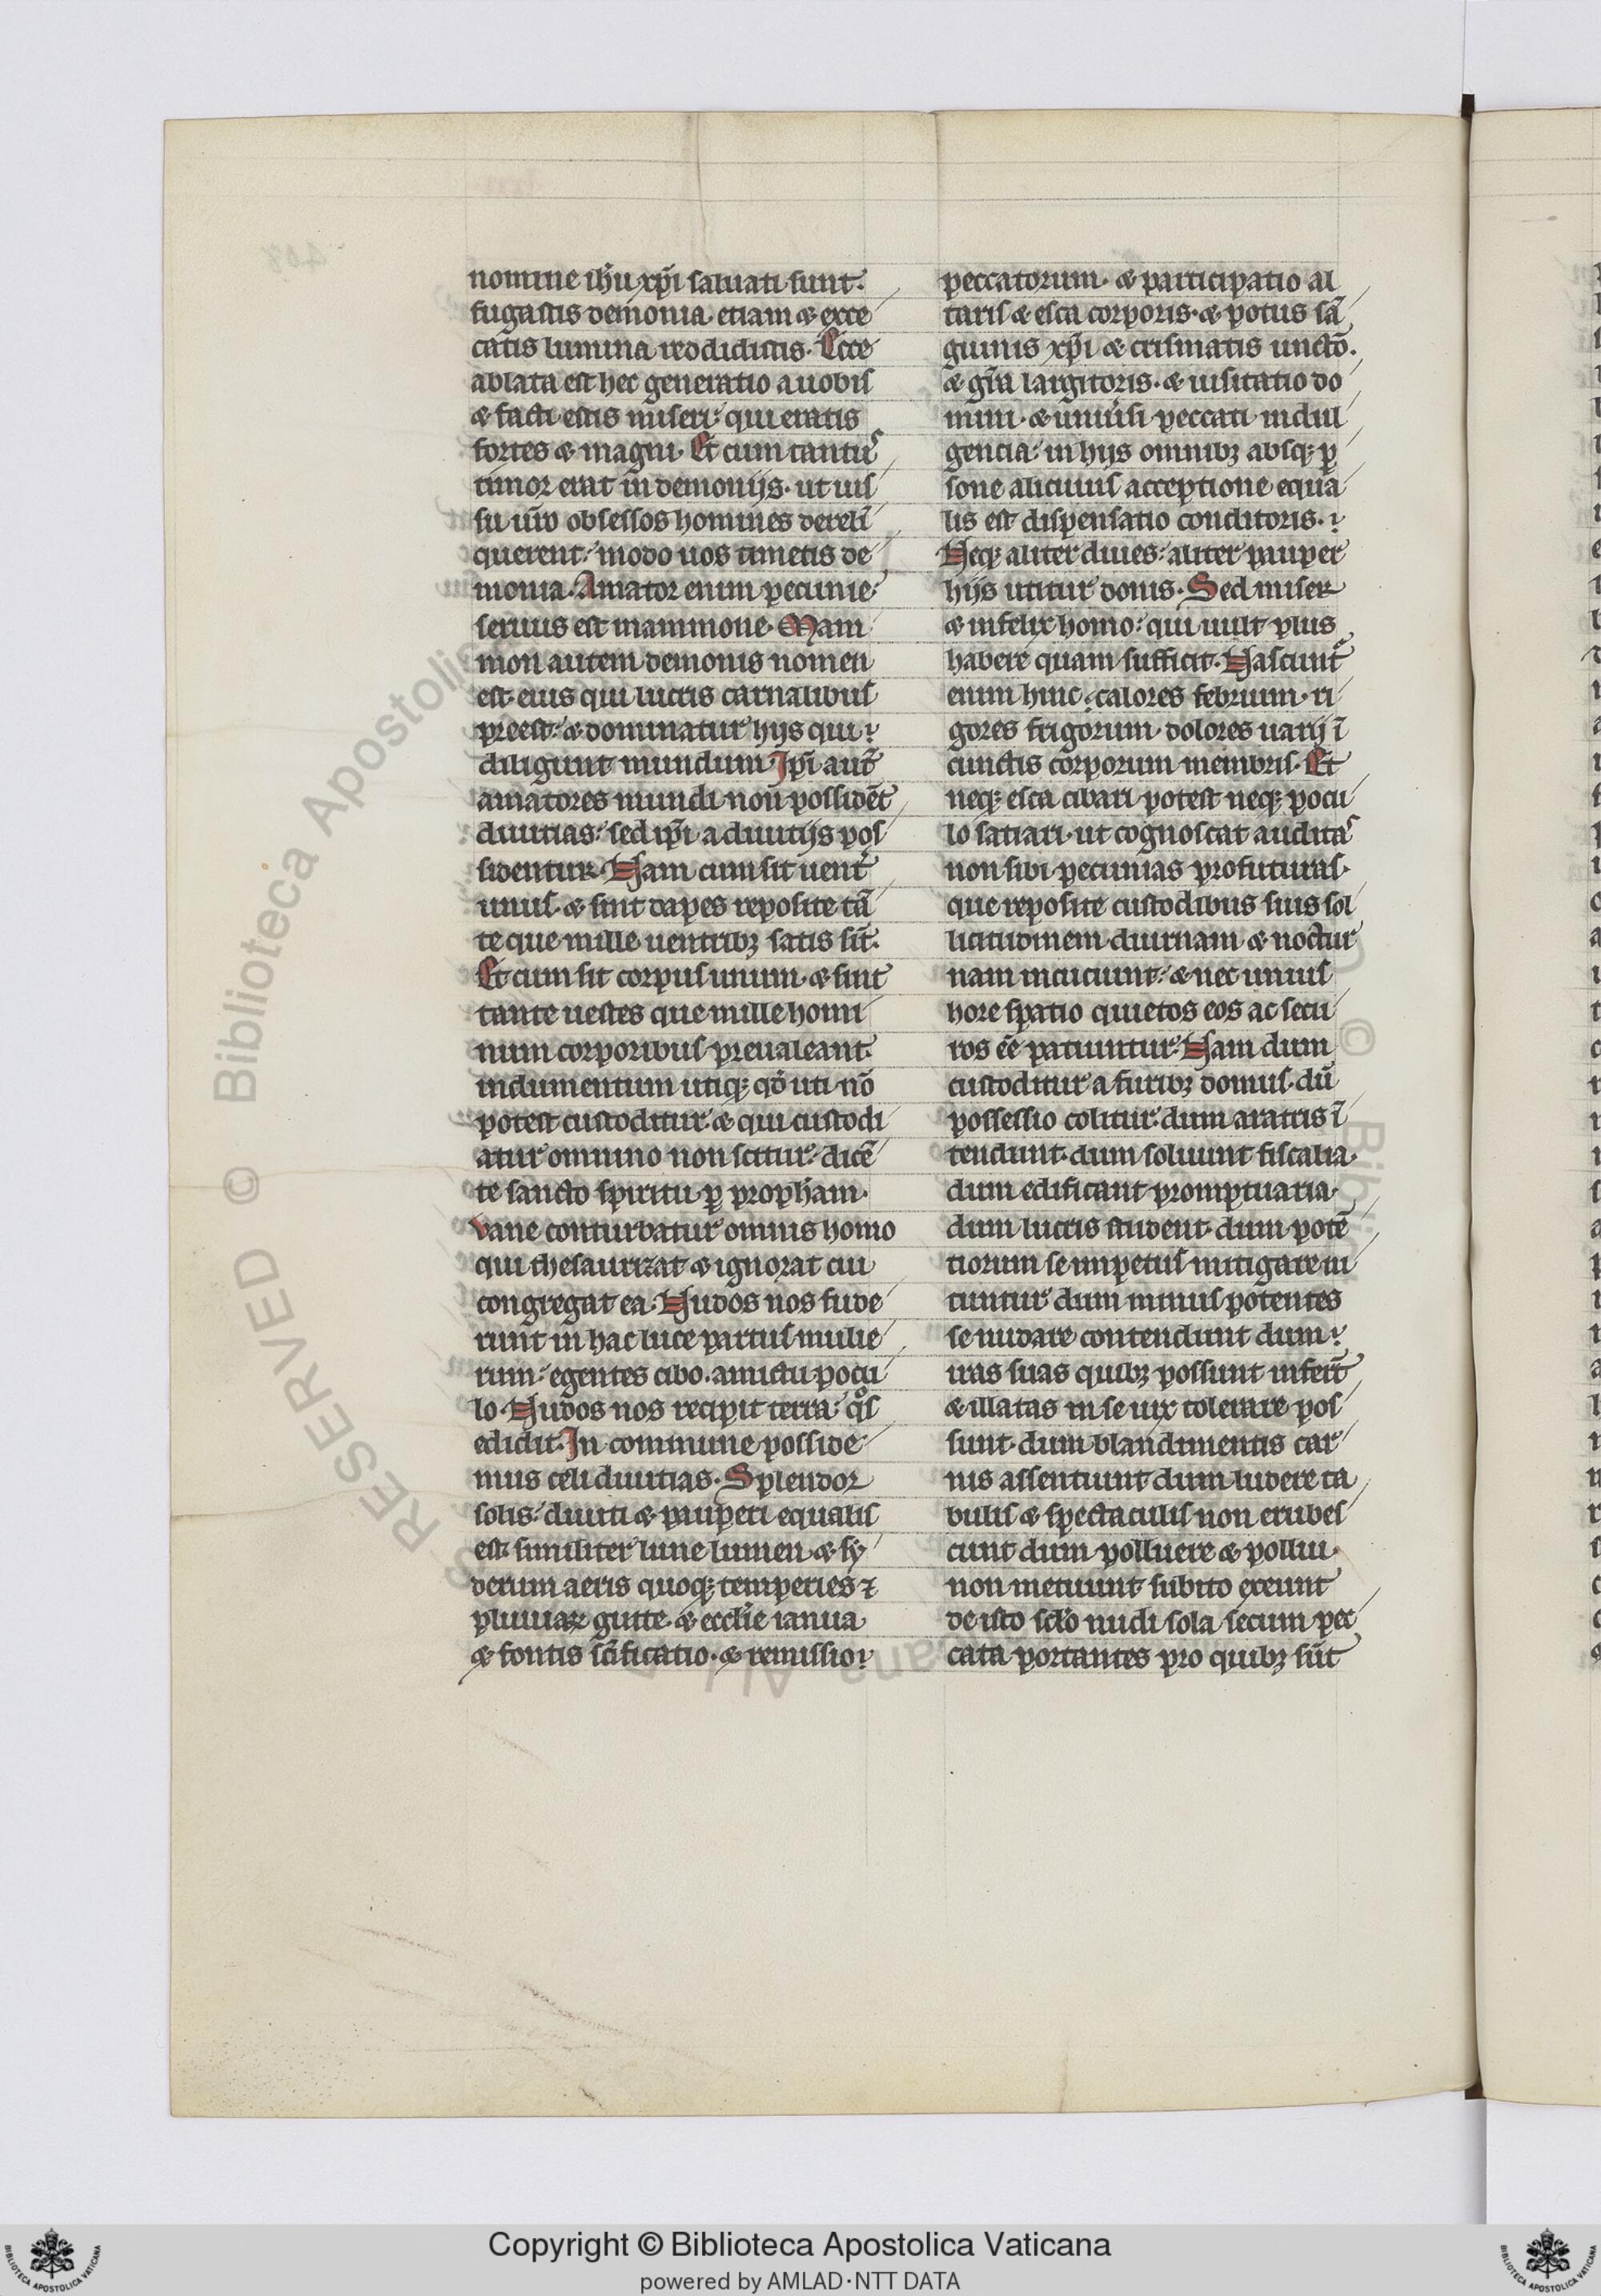 nomine ihu xpi saluati sunt.
fugastis demonia. etiam & exce
catis lumina reddidistis. Ecce
ablata est hec generatio a uobis
& facti estis miseri: qui eratis
fortes & magni. Et cum tantus
timor erat in demonijs. ut uis
su uro obsessos homines dereli
querent: modo uos timetis de
monia. Amator enim pecunie:
seruus est mammone. Mam
mon autem demonis nomen
est. eius qui lucris carnalibus
preest: & dominatur hijs qui
diligunt mundum Ipi aut
amatores mundi non possidet
diuitias: sed ipi a diuitijs pos
sidentur. Nam cum sit uent
unus. & sint dapes reposite ta
te que mille uentribꝫ satis sit.
Et cum sit corpus unum. & sint
tante uestes que mille homi
num corporibus preualeant.
indumentum utiqꝫ qd uti no
potest custoditur & qui custodi
atur omnino non scitur: dice
te sancto spiritu ꝑ propham.
Vane conturbatur omnis homo
qui thesaurizat & ignorat cui
congregat ea. Nudos nos fude
runt in hac luce partus mulie
rum: egentes cibo. amictu. pocu
lo. Nudos nos recipit terra: qs
edidit. In commune posside
mus celi diuitias. Splendor
solis: diuiti & pauperi equalis
est. similiter lune lumen & sy
derum aeris quoqꝫ temperies ⁊
pluuiaꝝ gutte. & ecclie ianua
& fontis scificatio. & remissio
peccatorum. & participatio al
taris & esca corporis. & potus sa
guinis xpi & crismatis uncto.
& gra largitoris. & uisitatio do
mini. & uniusi peccati indul
gencia: in hijs omnibꝫ absqꝫ ꝑ
sone alicuius acceptione equa
lis est dispensatio conditoris.
Neqꝫ aliter diues: aliter pauper
hijs utitur donis. Sed miser
& infelix homo: qui uult plus
habere quam sufficit. Nascunt
enim hinc calores febrium. ri
gores frigorum. dolores uarij i
cunctis corporum membris. Et
neqꝫ esca cibari potest neqꝫ pocu
lo satiari. ut cognoscat auditas
non sibi pecunias profuturas.
que reposite custodibus suis sol
licitudinem diurnam & noctur
nam incuciunt: & nec unius
hore spatio quietos eos ac secu
ros ee patiuntur. Nam dum
custoditur a furibꝫ domus. du
possessio colitur. dum aratris i
tendunt. dum soluunt fiscalia.
dum edificant promptuaria.
dum lucris student. dum pote
tiorum se impetus mitigare ni
tuntur dum minus potentes
se nudare contendunt dum
iras suas quibꝫ possunt infert
& illatas in se uix tolerare pos
sunt. dum blandimentis car
nis assentiunt dum ludere ta
bulis & spectaculis non erubes
cunt dum polluere & pollui.
non metuunt. subito exeunt
de isto sclo nudi sola secum pec
cata portantes pro quibꝫ sut
© Biblioteca Apostolica
RESERVED
Copyright © Biblioteca Apostolica Vaticana
powered by AMLAD·NTT DATA